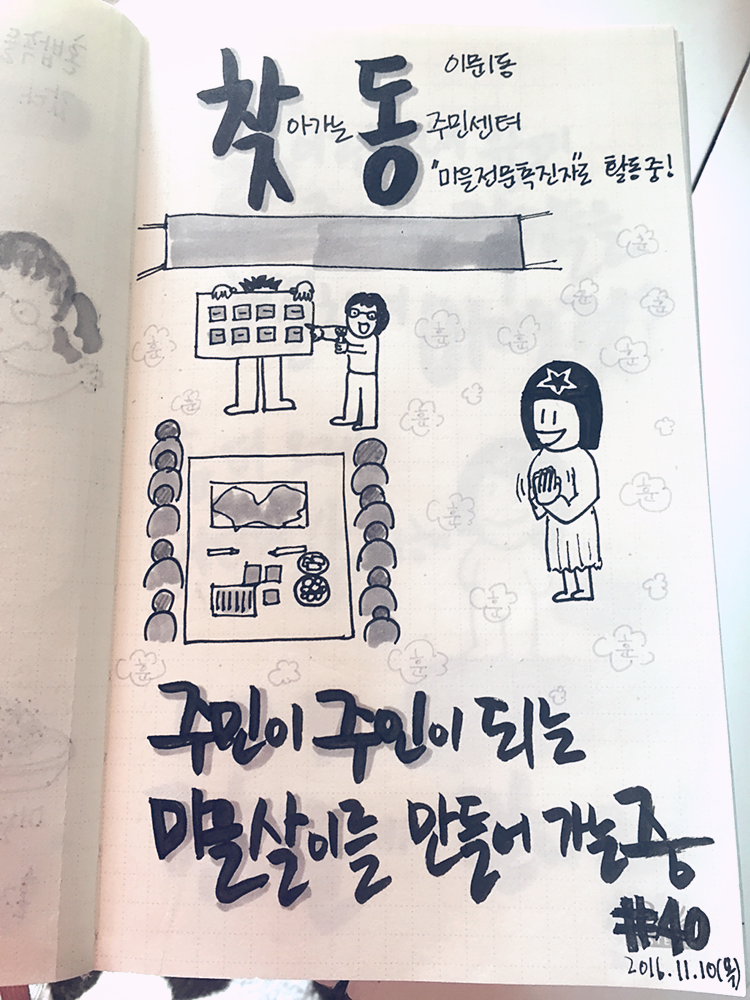 이문1동
찾아가는 동주민센터
"마을전문촉진자"로 활동중!
훈 훈 훈
훈 훈 훈 훈
훈
훈 훈
훈
훈 훈 훈
주민이 주인이 되는
마을살이를 만들어 가는 중
#40
2016.11.10(목)